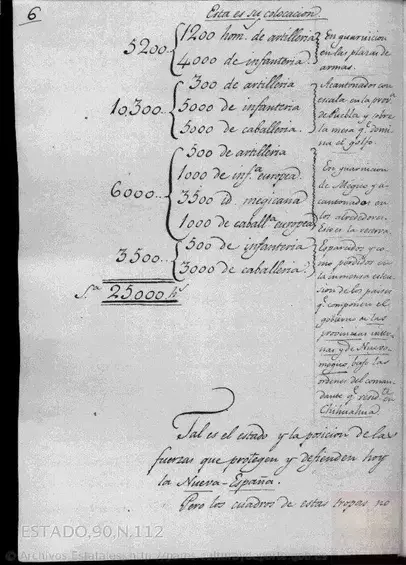 6
Esta es su colocacion.
5200
1200 hom.s de artilleria
4000 de infanteria
En guarnicion
en las plazas de
armas.
10,300
300 de artilleria
5000 de infanteria
5000 de caballeria
Acantonados con
escala en la prov.a
de Puebla y sobre
la mesa q.e domi
na el golfo.
6000
500 de artilleria
1000 de inf.a europea
3500 id. megicana
1000 de caball.a europea
En guarnicion
de Megico y a
cantonados en
los alrededores.
Esta es la reserva.
3500
500 de infanteria
3000 de caballeria
Esparcidos y co
mo perdidos en
la inmensa esten
sion de los paises
q.e componen el
gobierno de las
provincias inter
nas y de Nuevo-
megico bajo las
ordenes del coman
dante q.e reside en
Chihuahua
S.n 25000 h.s
Tal es el estado y la posicion de las
fuerzas que protegen y defienden hoy
la Nueva-España.
Pero los cuadros de estas tropas no
ESTADO,90,N.112